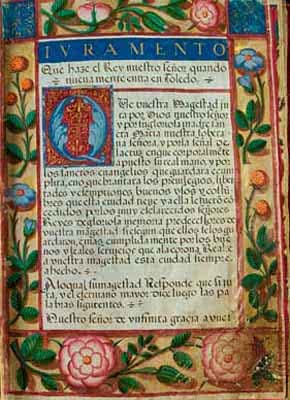 IVRAMENTO
Que haze el Rey nuestro señor quando
nueuamente entra en Toledo.
Que vuestra Magestad ju
ra por Dios nuestro señor
y por su gloriosa madre san
cta Maria nuestra sobera
na señora, y por la señal de
la cruz en que corporalmẽte
a puesto su real mano, y por
los sanctos euangelios que guardara y cum
plira, e no quebrantara los preuilegios, liber
tades y exemptiones, buenos vsos y costũ
bres que esta ciudad tiene, y a ella le fuerõ cõ
cedidos por los muy esclarecidos señores
Reyes de gloriosa memoria predecessores de
vuestra magestad, segun que ellos se los gu
ardaron, e mas cumplidamente por los bue
nos y leales seruicios que a la corona Real e
a vuestra magestad esta ciudad siempre
a hecho.
A lo qual su magestad Responde que si ju
ra, y el escriuano mayor dize luego las pa
labras siguientes.
Nuestro señor de ynfinita gracia a vue